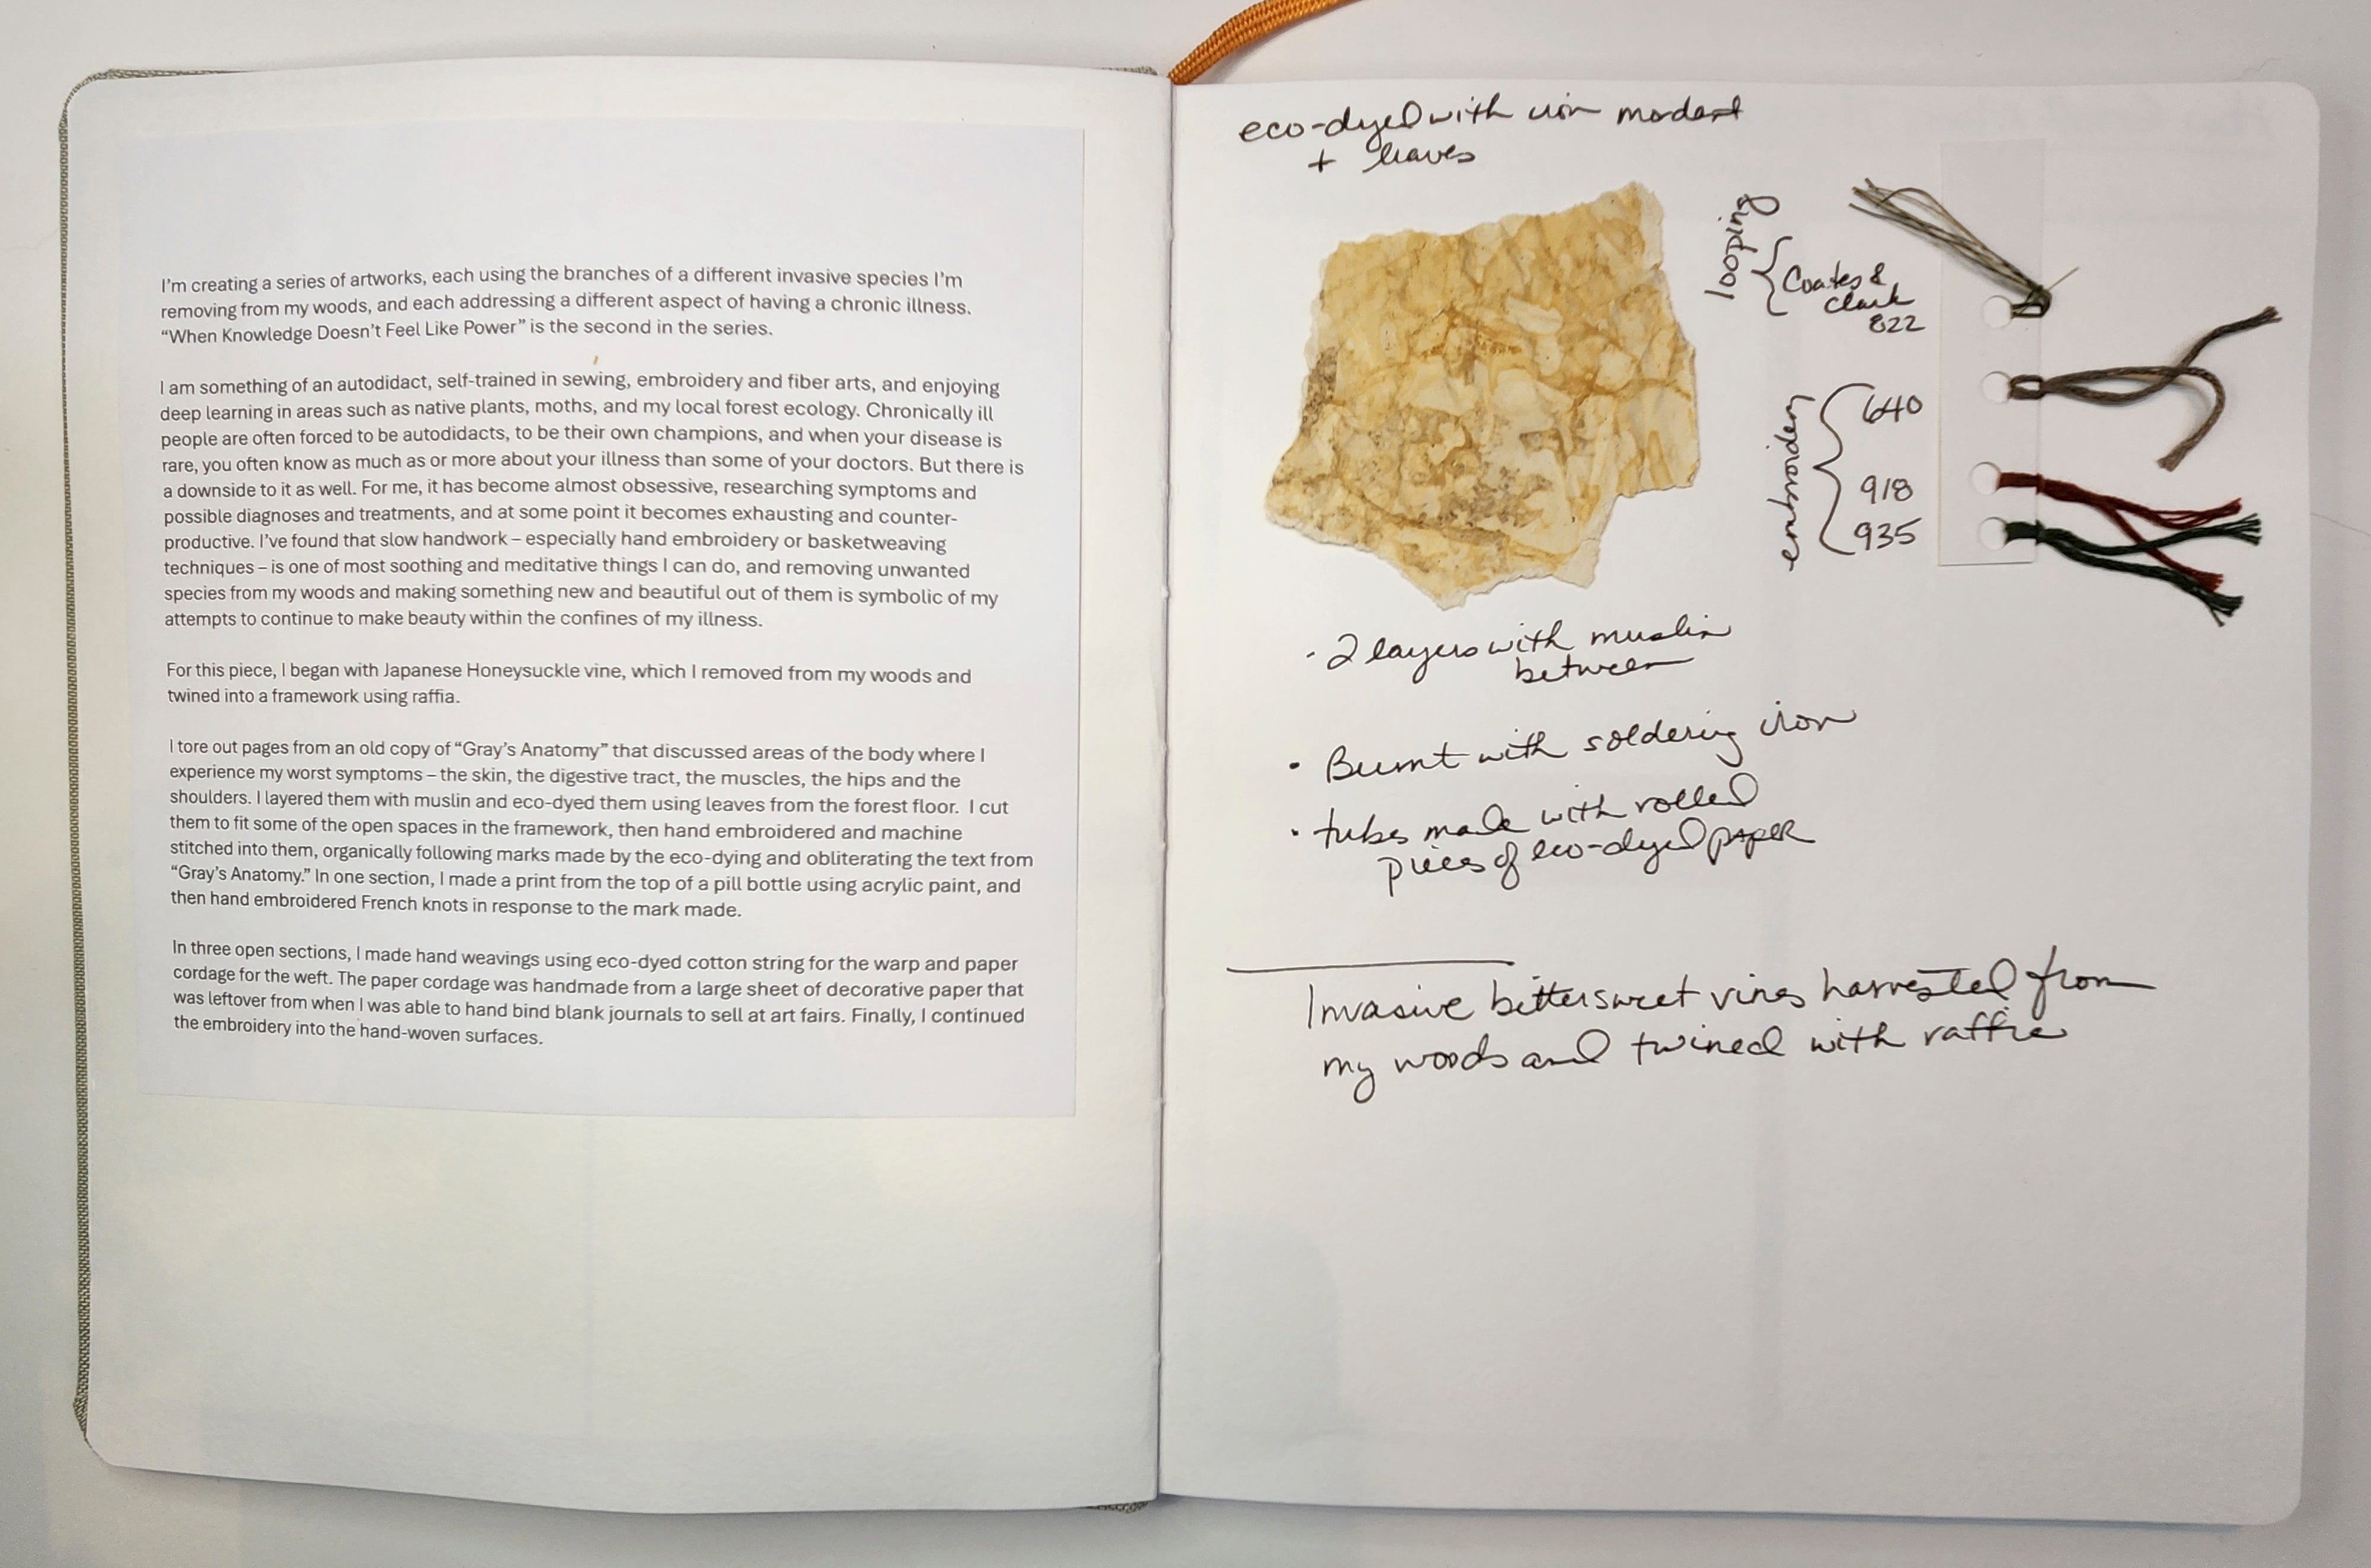 I'm creating a series of artworks, each using the branches of a different invasive species I'm
removing from my woods, and each addressing a different aspect of having a chronic illness.
“When Knowledge Doesn't Feel Like Power” is the second in the series.
I am something of an autodidact, self-trained in sewing, embroidery and fiber arts, and enjoying
deep learning in areas such as native plants, moths, and my local forest ecology. Chronically ill
people are often forced to be autodidacts, to be their own champions, and when your disease is
rare, you often know as much as or more about your illness than some of your doctors. But there is
a downside to it as well. For me, it has become almost obsessive, researching symptoms and
possible diagnoses and treatments, and at some point it becomes exhausting and counter-
productive. I've found that slow handwork – especially hand embroidery or basketweaving
techniques – is one of most soothing and meditative things I can do, and removing unwanted
species from my woods and making something new and beautiful out of them is symbolic of my
attempts to continue to make beauty within the confines of my illness.
For this piece, I began with Japanese Honeysuckle vine, which I removed from my woods and
twined into a framework using raffia.
I tore out pages from an old copy of “Gray's Anatomy” that discussed areas of the body where I
experience my worst symptoms – the skin, the digestive tract, the muscles, the hips and the
shoulders. I layered them with muslin and eco-dyed them using leaves from the forest floor. I cut
them to fit some of the open spaces in the framework, then hand embroidered and machine
stitched into them, organically following marks made by the eco-dying and obliterating the text from
“Gray's Anatomy.” In one section, I made a print from the top of a pill bottle using acrylic paint, and
then hand embroidered French knots in response to the mark made.
In three open sections, I made hand weavings using eco-dyed cotton string for the warp and paper
cordage for the weft. The paper cordage was handmade from a large sheet of decorative paper that
was leftover from when I was able to hand bind blank journals to sell at art fairs. Finally, I continued
the embroidery into the hand-woven surfaces.
eco-dyed with iron mordant
+ leaves
looping
Coates &
Clark
822
embroidery
640
918
935
· 2 layers with muslin
between
· Burnt with soldering iron
· tubes made with rolled
pieces of eco-dyed paper
Invasive bittersweet vines harvested from
my woods and twined with raffia